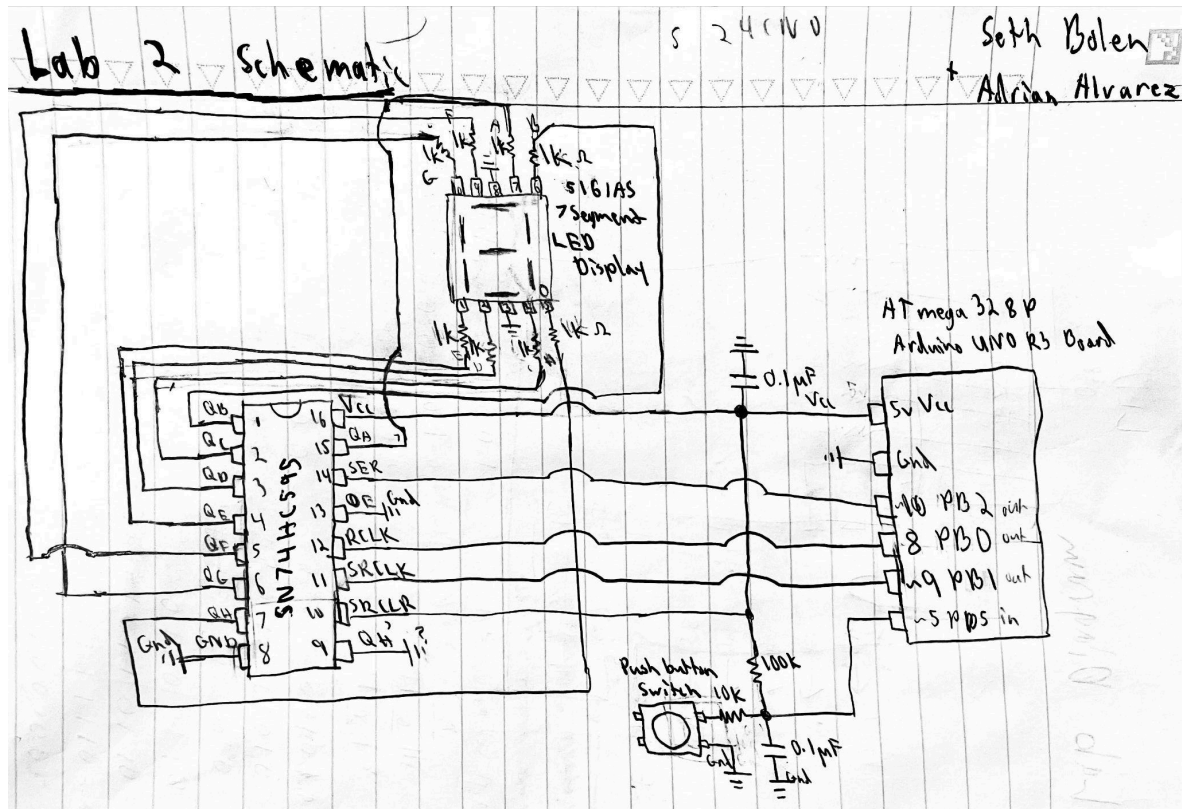 Lab 2 Schematic
Seth Bolen
+
Adrian Alvarez
F
A
B
1k
1k
1k
1kΩ
G
10 9 8 7 6
5161AS
7 Segment
LED
Display
1k
1k
1kΩ
E
D
C
ATmega 328P
Arduino UNO R3 Board
0.1µF
Vcc
5v
5v Vcc
Gnd
~10 PB2 out
8 PB0 out
~9 PB1 out
~5 PD5 in
SN74HC595
QB 1
QC 2
QD 3
QE 4
QF 5
QG 6
QH 7
Gnd GND 8
16 Vcc
15 QA
14 SER
13 OE Gnd
12 RCLK
11 SRCLK
10 SRCLR
9 QH' ?
100k
Push button
Switch 10k
Gnd
0.1µF
Gnd